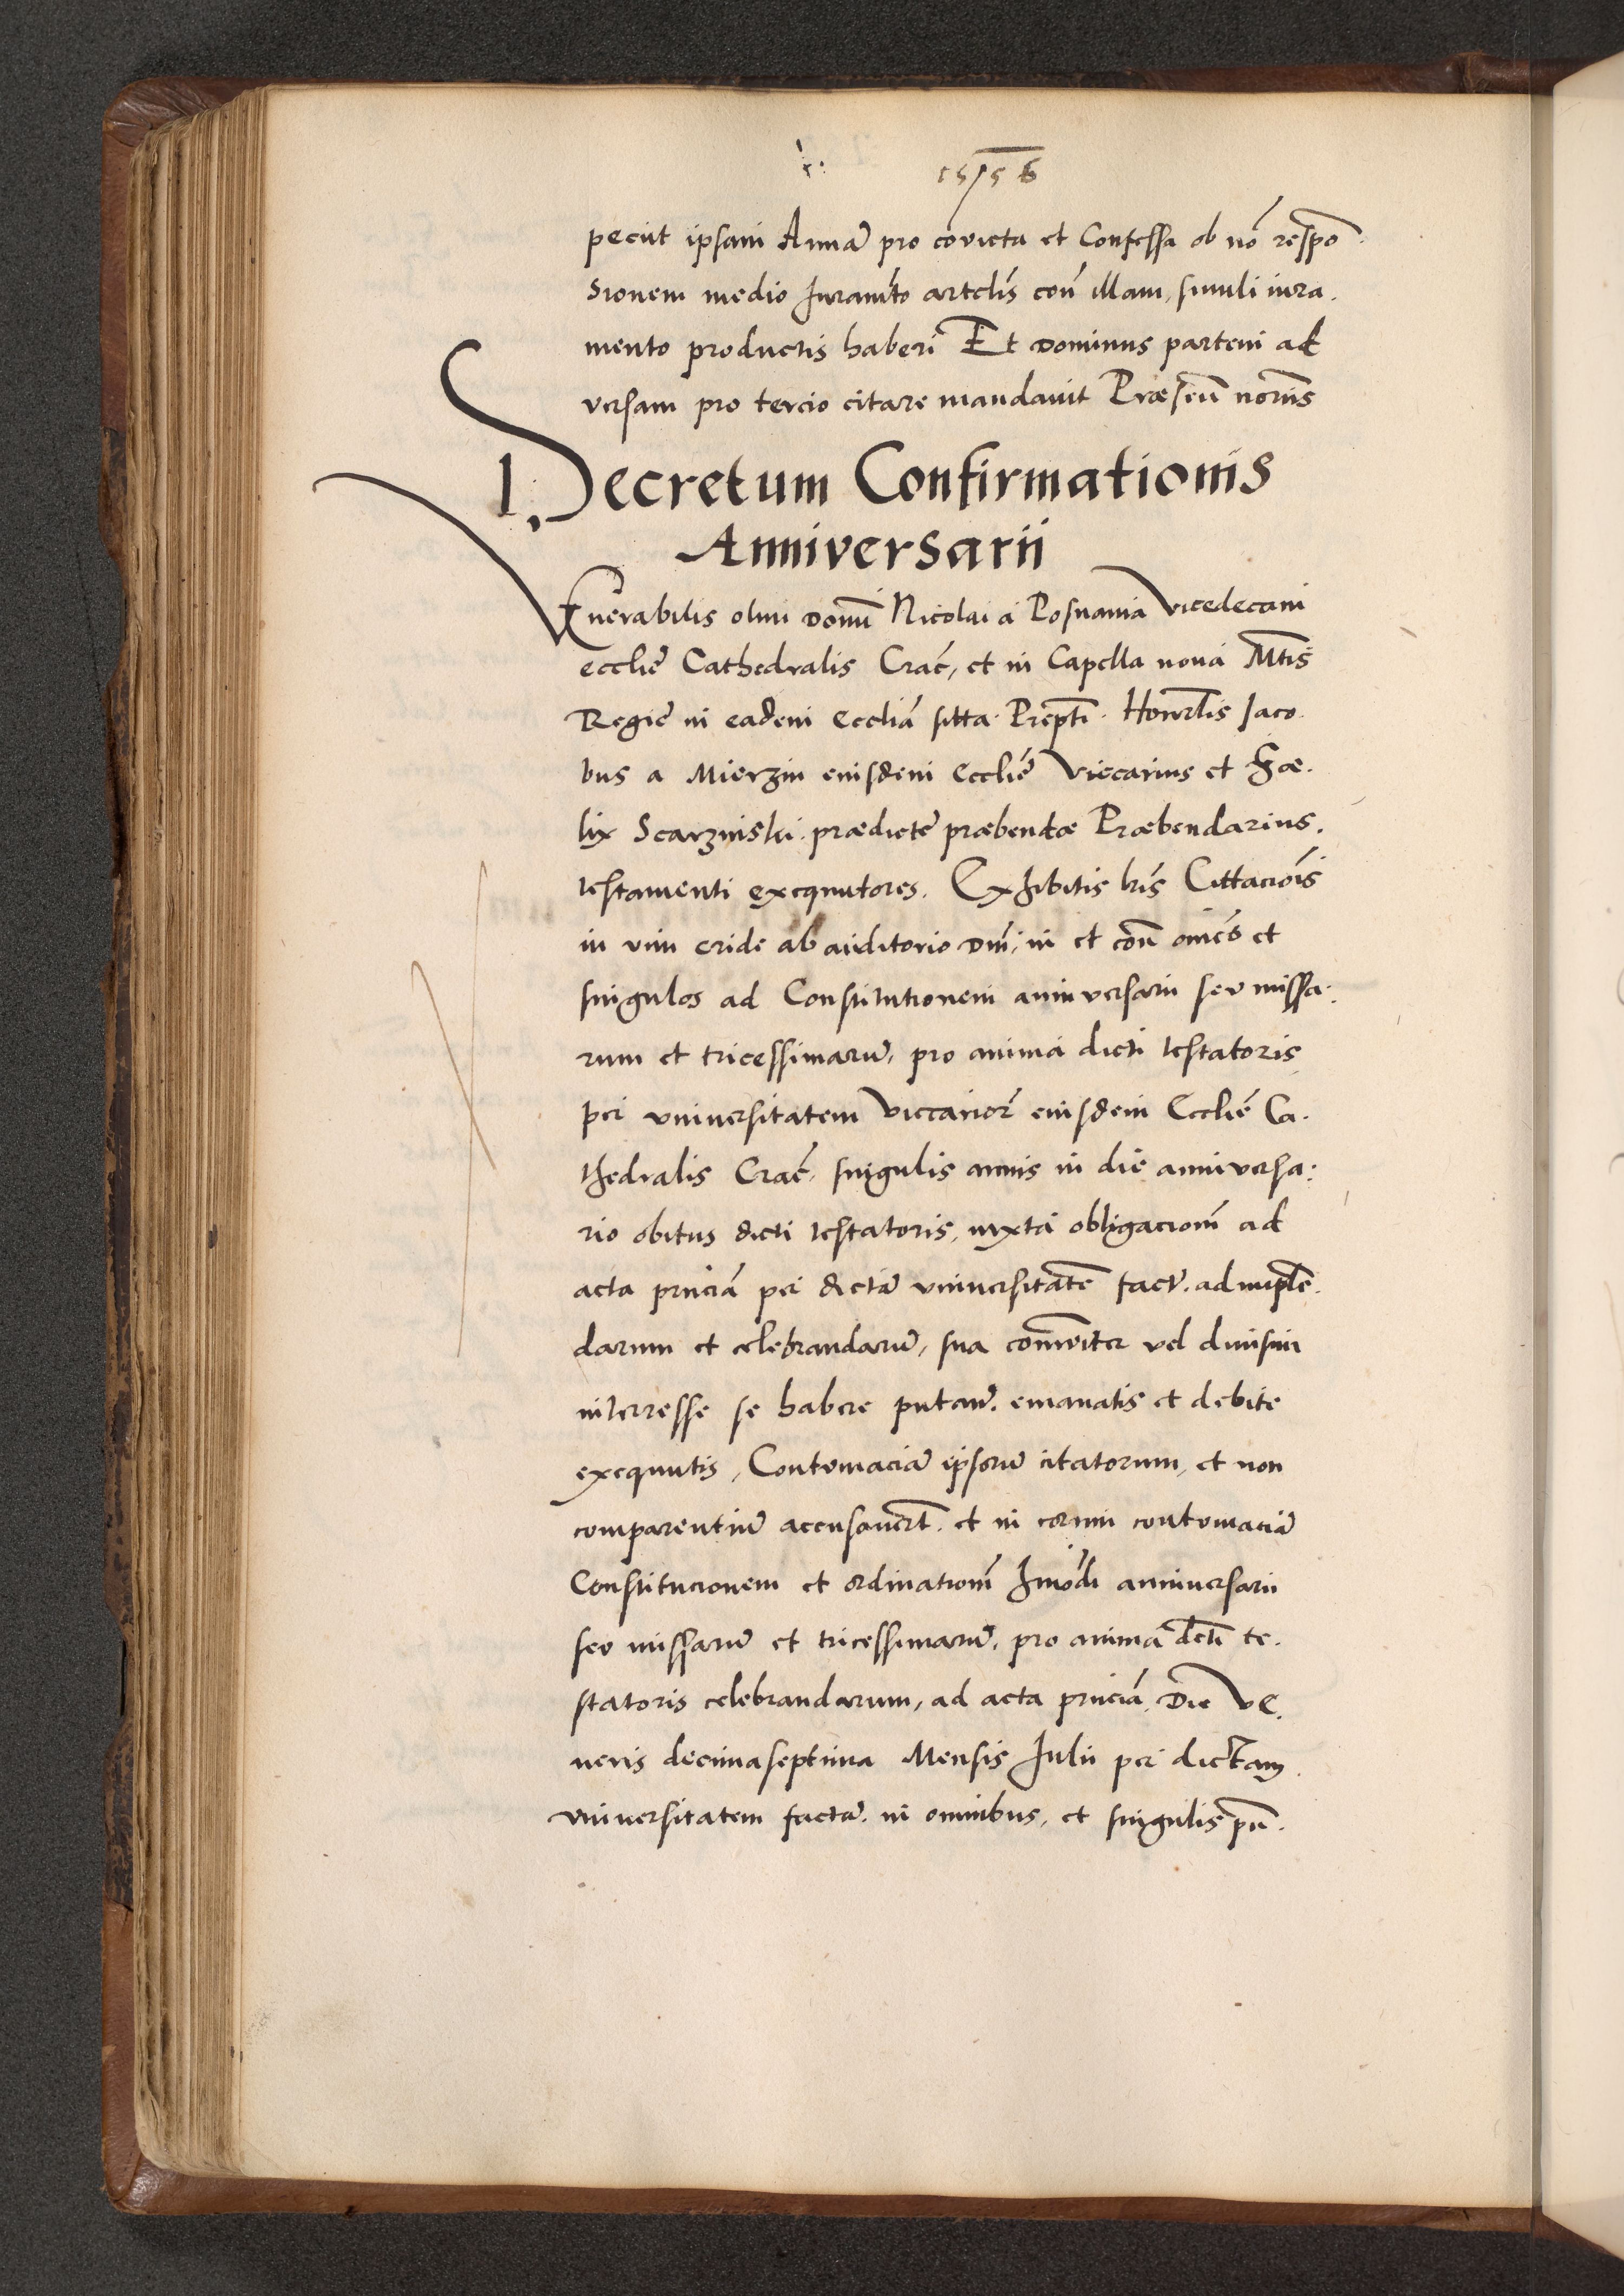 1556
peciit ipsam Annã pro cõvicta et Confessa ob nõ respõ
sionem medio Iuramẽto artclis coñ illam, simili iura.
mento productis haberi Et Dominus partem ad
versam pro tercio citare mandavit Præsen᷃ notariis
Decretum Confirmationis
Anniversarii
Venerabilis olim domi᷃ Nicolai a Posnania Vicedecani
ecclie᷃ Cathedralis Crac᷃, et in Capella nova Mtis᷃
Regie᷃ in eadem Ecclia᷃ sitta. Prepti᷃. Honorlis᷃ Jaco.
bus a Mierzin eiusdem Ecclie᷃ Viccarius et Fæ.
lix Scarzinski prædicte᷃ præbendæ Præbendarius.
testamenti exequutores. Exhibitis lris᷃ Cittaciois᷃
in vim cride ab auditorio Dni᷃, in et con᷃ omes᷃ et
singulos ad Constitutionem anniversarii sev missa.
rum et tricessimaru᷃, pro anima dicti testatoris
per universitatem Viccarior᷃ eiusdem Ecclie᷃ Ca.
thedralis Crac᷃, singulis annis in die anniversa:
rio obitus dicti testatoris, iuxta obligacionem᷃ ad
acta pn̄cia᷃ per dicta᷃ universitate᷃ fact᷃. adimple᷃.
darum et celebrandaru᷃, sua com̄uiter vel divisim
interresse se habere putan᷃. emanatis et debite
exequutis, Contumacia᷃ ipsoru᷃ citatorum, et non
comparentiu᷃ accusaver̄t. et in eorum contumacia᷃
Constitucionem et ordinationem᷃ hmo᷃di anniversarii
sev missaru᷃ et tricessimaru᷃, pro anima dcti᷃ te.
statoris celebrandarum, ad acta pn̄cia᷃. Die Ve.
neris decimaseptima Mensis Julii per dictam
universitatem facta᷃. in omnibus, et singulis pu᷃.